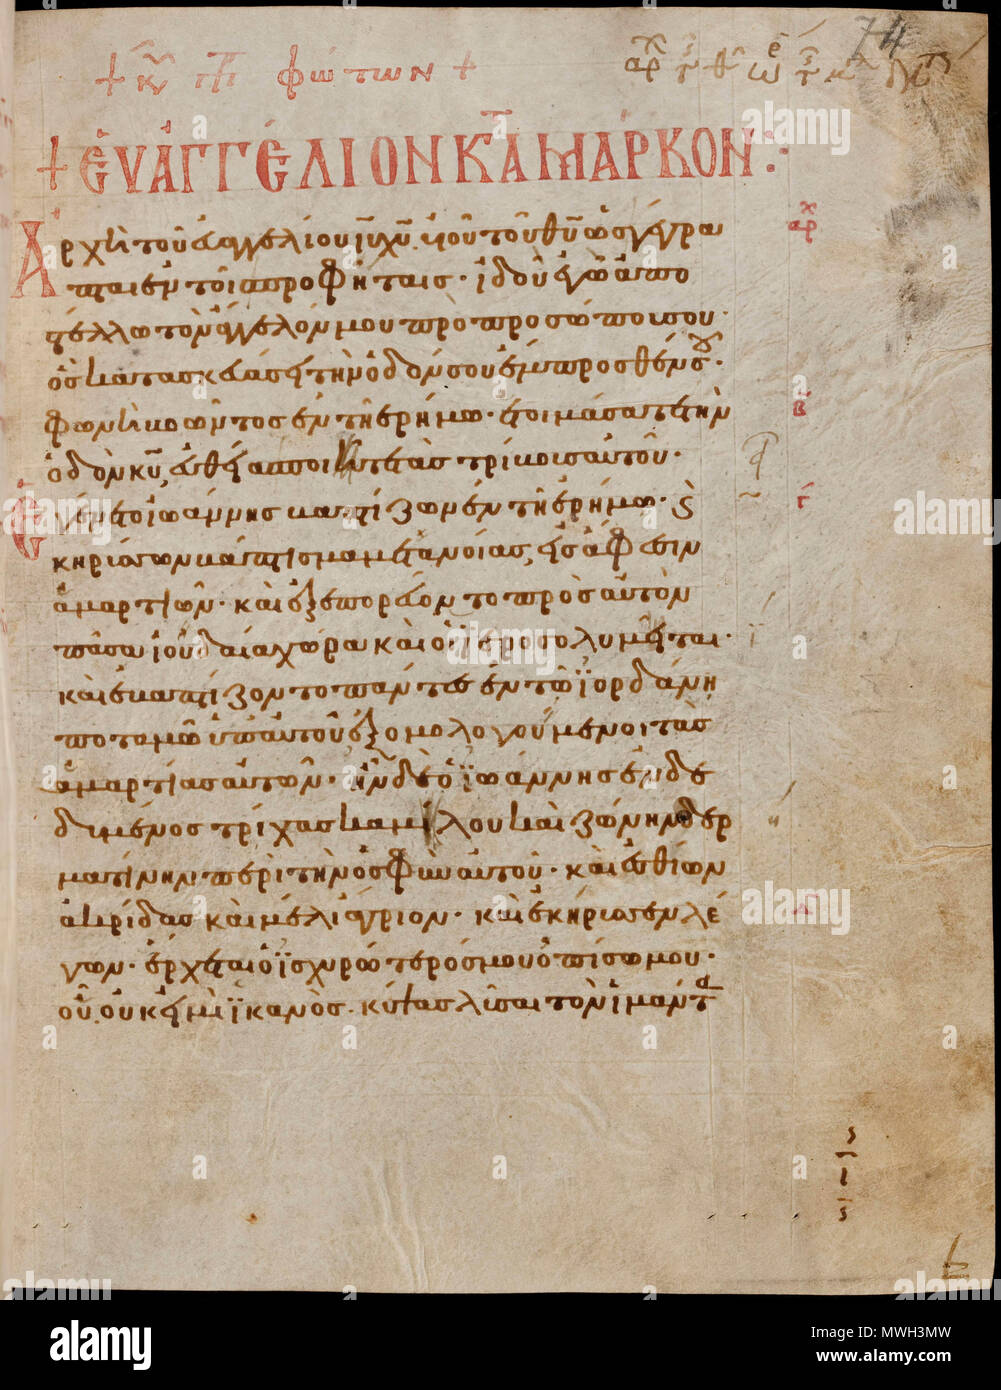 + Κυ πρ φώτων +
74
+ ἐυἀγγέλιον κατὰ μάρκον :·
Ἀρχὴ τοῦ εὐαγγελίου ιυ χυ υἱοῦ τοῦ θυ ὡς γέγρα
πται ἐν τοῖς προφήταις · ἰδοὺ ἐγὼ ἀπο
στέλλω τὸν ἄγγελόν μου πρὸ προσώπου σου ·
ὃς κατασκευάσει τὴν ὁδόν σου ἔμπροσθέν σου ·
φωνὴ βοῶντος ἐν τῇ ἐρήμω · ἑτοιμάσατε τὴν
ὁδὸν κυ, εὐθείας ποιεῖτε τὰς τρίβους αὐτοῦ ·
Ἐγένετο ἰωάννης βαπτίζων ἐν τῇ ἐρήμω · καὶ
κηρύσσων βάπτισμα μετανοίας, εἰς ἄφεσιν
ἁμαρτιῶν · καὶ ἐξεπορεύοντο πρὸς αὐτὸν
πᾶσα ἡ ἰουδαία χώρα καὶ οἱ ἱεροσολυμῖται ·
καὶ ἐβαπτίζοντο πάντες ἐν τῶ ἰορδάνη
ποταμῶ ὑπ' αὐτοῦ ἐξομολογούμενοι τὰς
ἁμαρτίας αὐτῶν · ἦν δὲ ὁ ἰωάννης ἐνδε
δυμένος τρίχας καμήλου καὶ ζώνην δερ
ματίνην περὶ τὴν ὀσφὺν αὐτοῦ · καὶ ἐσθίων
ἀκρίδας καὶ μέλι ἄγριον · καὶ ἐκήρυσσεν λέ
γων · ἔρχεται ὁ ἰσχυρότερός μου ὀπίσω μου ·
οὗ οὐκ εἰμὶ ἱκανὸς · κύψας λῦσαι τὸν ἱμάντα
alamy
Image ID: MWH3MW
www.alamy.com